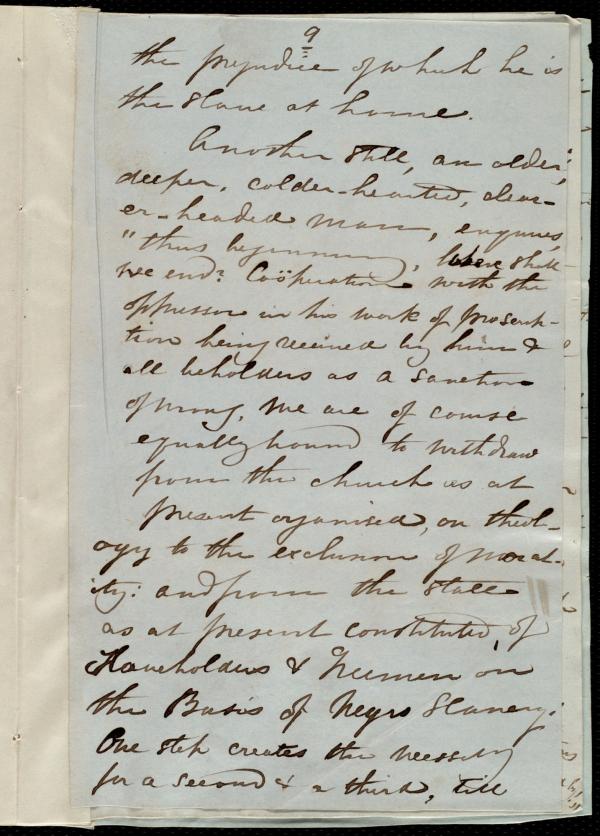 9
the prejudice of which he is
the slave at home.
Another still, an older,
deeper, colder-hearted, clear-
er-headed man, enquires,
"thus beginning, where shall
we end? Coöperation with the
oppressor in his work of proscrip-
tion being received by him &
all beholders as a sanction
of wrong, we are of course
equally bound to withdraw
from the church as at
present organised, on theol-
ogy to the exclusion of moral-
ity: and from the state
as at present constituted, of
Slaveholders & Freemen on
the Basis of Negro Slavery.
One step creates the necessity
for a second & a third, till